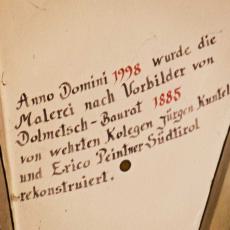 Anno Domini 1998 wurde die
Malerei nach Vorbilder von
Dolmetsch-Baurat 1885
von wehrten Kolegen Jürgen Kuntel
und Erico Peintner-Südtirol
rekonstruiert.